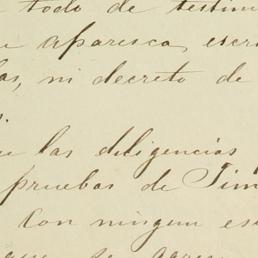 todo de testim
aparesca, escri
as, ni decreto de
s.
e las diligencias
pruebas de Tim
Con ningun es
que se agre